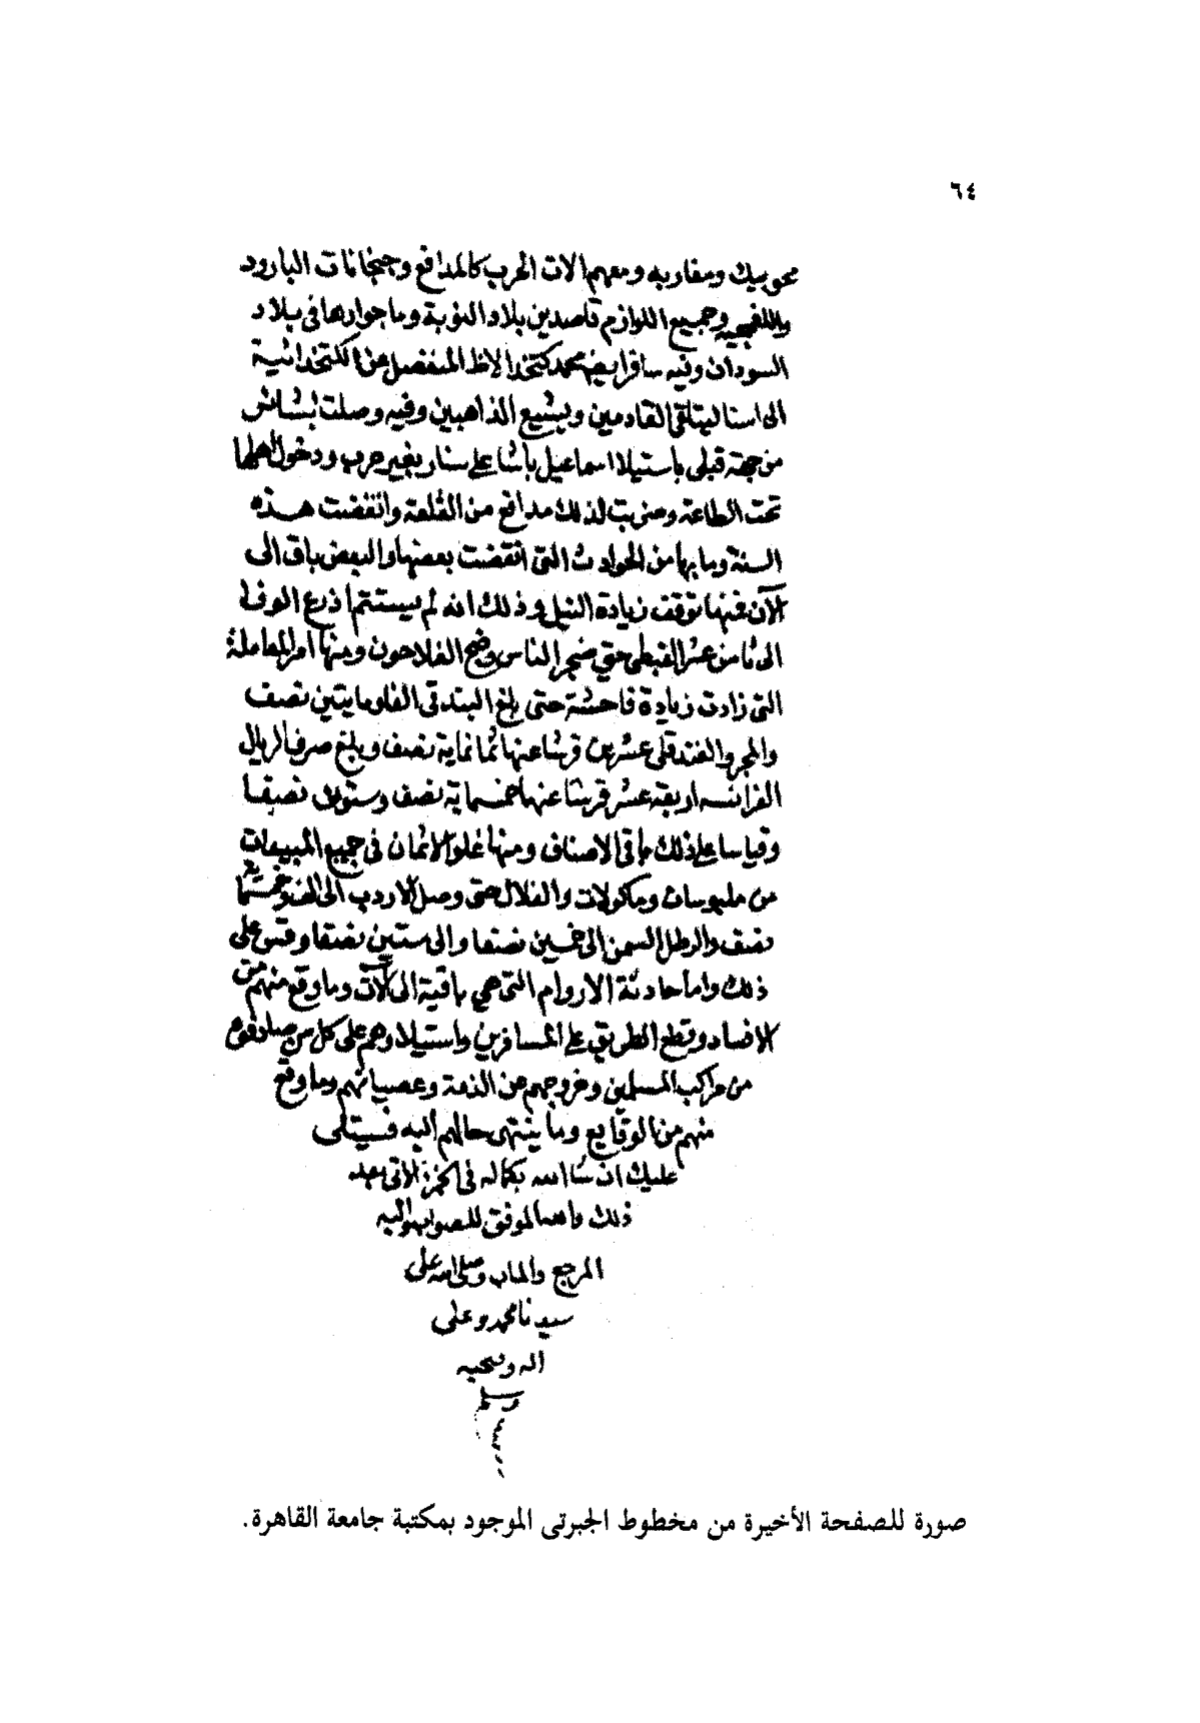 ٦٤
محو بيك ومغاربه ومعهم الات الحرب كالمدافع وجبخانات البارود
واللغمجيه وجميع اللوازم قاصدين بلاد النوبة وما جوارها فى بلاد
السودان وفيه سافر ايضا محمد كتخدا لاظ المنفصل عن الكتخدائية
الى اسنا ليتلقى القادمين ويشيع الذاهبين وفيه وصلت بشائر
من جهة قبلى باستيلا اسماعيل باشا على سنار بغير حرب ودخول اهلها
تحت الطاعة وضربت لذلك مدافع من القلعة وانقضت هذه
السنة وما بها من الحوادث التى انقضت بعضها والبعض باق الى
الآن فمنها توقف زيادة النيل وذلك انه لم يستتم اذرع الوفا
الى ثامن عشر القبطى حتى ضجر الناس وضج الفلاحون ومنها امر المعاملة
التى زادت زيادة فاحشة حتى بلغ البندقى الفا ومايتين نصف
والمجر والفندقلى عشرين قرشا عنها ثمانماية نصف وبلغ صرف الريال
الفرانسه اربعة عشر قرشا عنها خمسماية نصف وستون نصفا
وقياسا على ذلك باقى الاصناف ومنها غلو الاثمان فى جميع المبيعات
من ملبوسات وماكولات والغلال حتى وصل الاردب الى الف وخمسماية
نصف والرطل السمن الى خمسين نصفا والى ستين نصفا وقس على
ذلك واما حادثة الاروام التى هى باقية الى الآن وما وقع منهم من
الافساد وقطع الطريق على المسافرين واستيلاوهم على كل من صادفوه
من مراكب المسلمين وخروجهم عن الذمة وعصيانهم وما وقع
منهم من الوقايع وما ينتهى حالهم اليه فسيتلى
عليك ان شا الله بكماله فى الجزء الاتى بعد
ذلك والله الموفق للصواب واليه
المرجع والماب وصلى الله على
سيدنا محمد وعلى
اله وصحبه
وسلم
صورة للصفحة الأخيرة من مخطوط الجبرتى الموجود بمكتبة جامعة القاهرة.